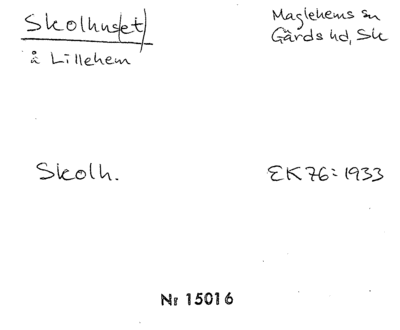 Skolhus(et)
å Lillehem
Maglehems sn
Gärds hd, Sk
Skolh.
EK 76:1933
Nr 15016